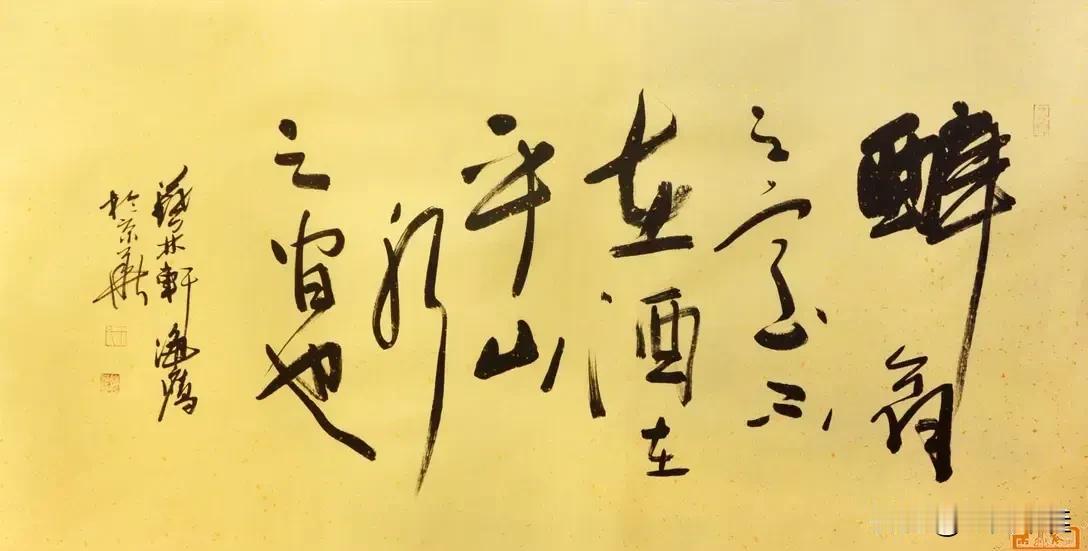 醉翁
之意不
在酒在
乎山
水
之间也
藝林軒
於京華